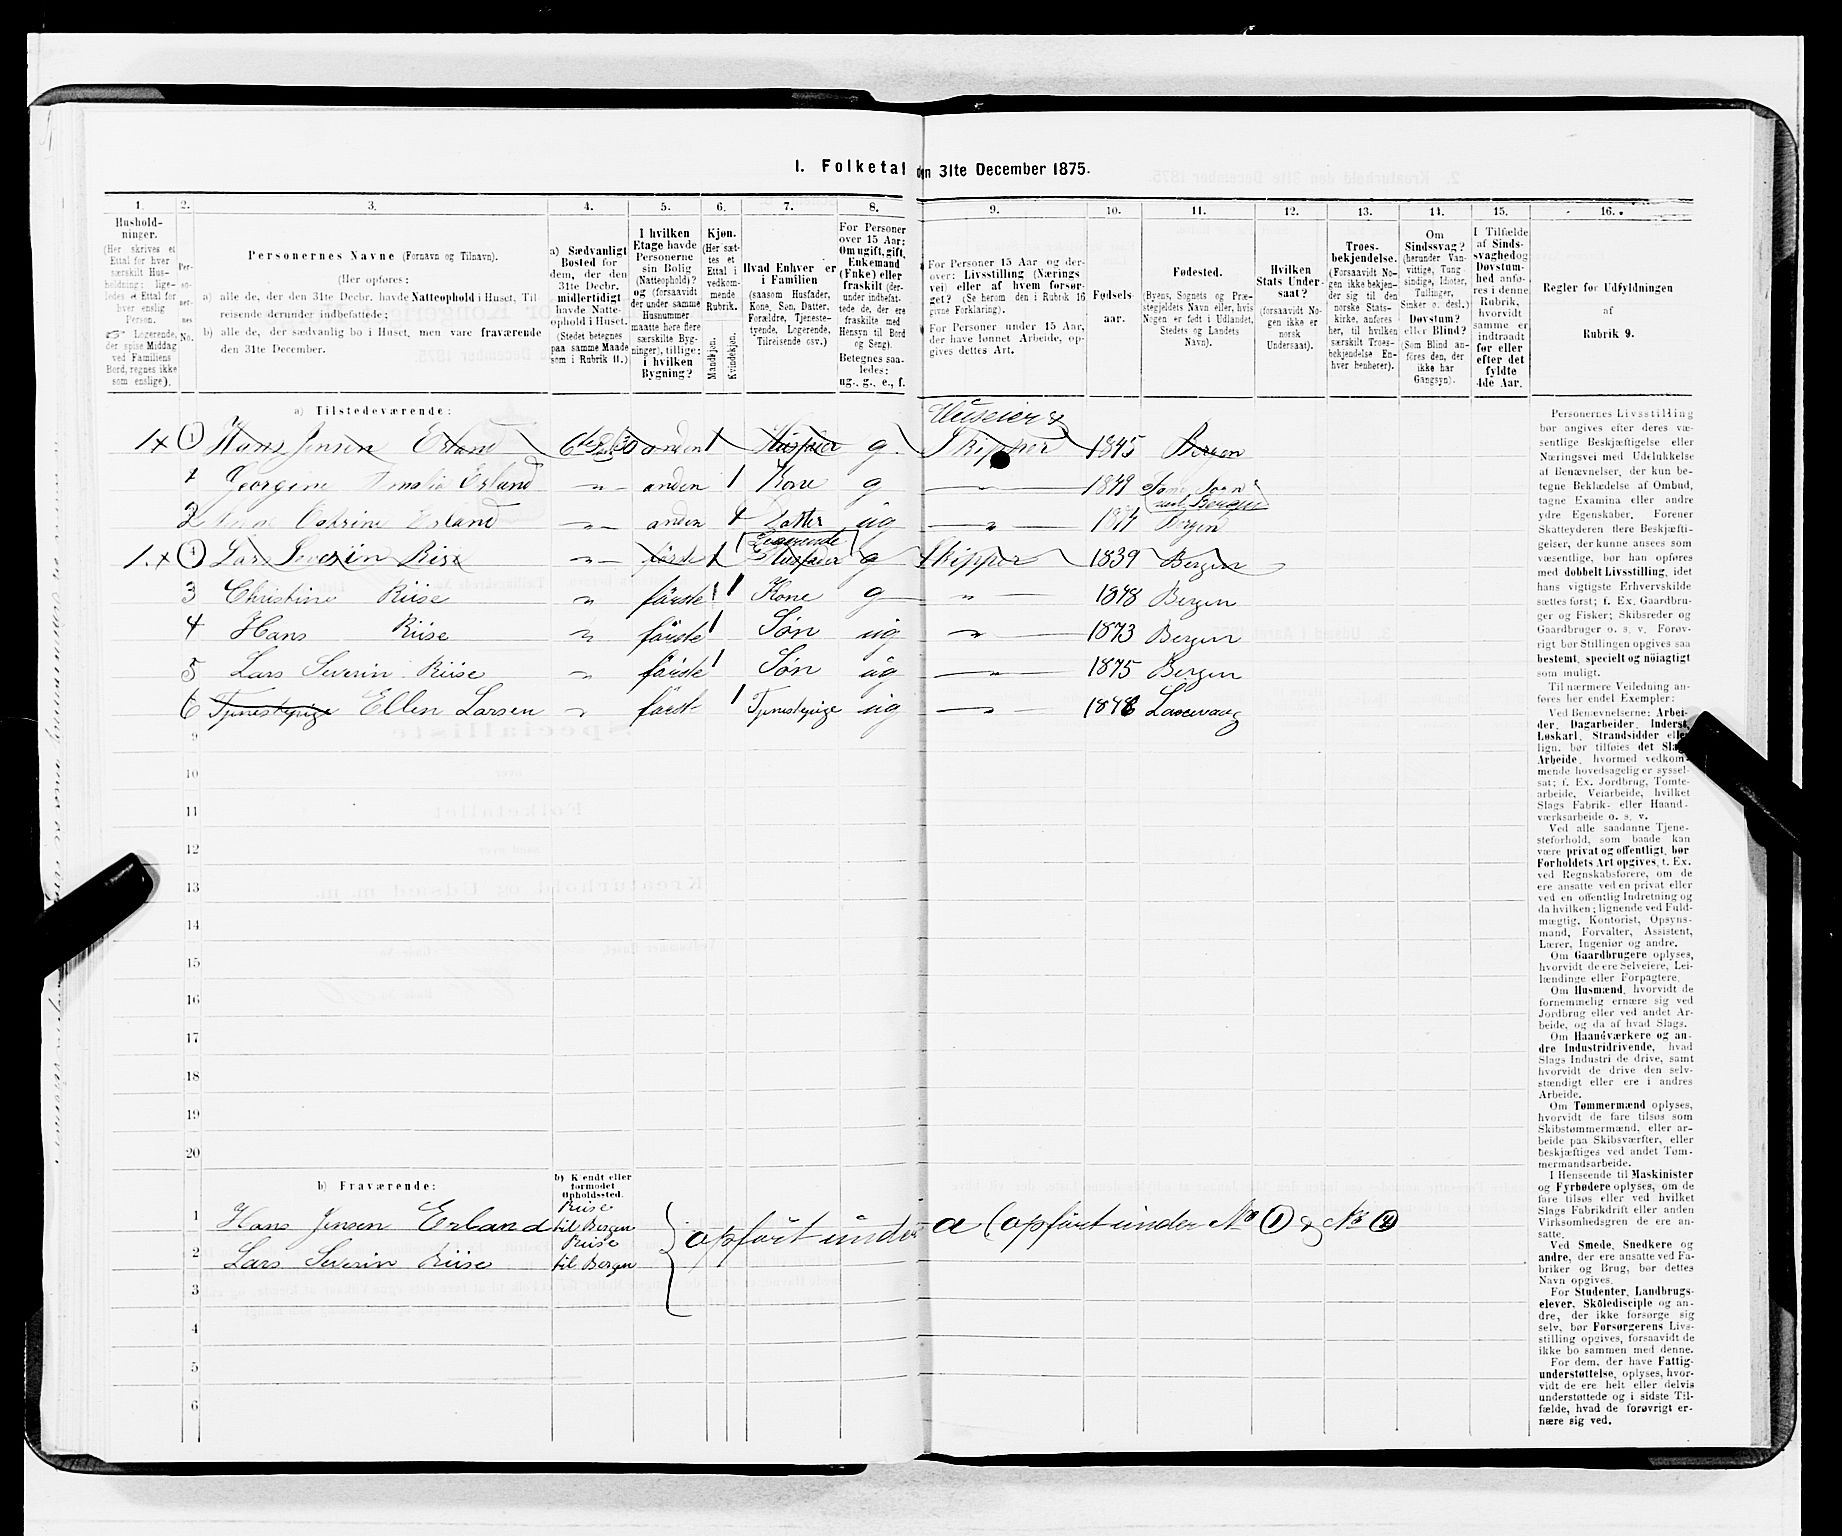 I. Folketal den 31te December 1875.
1. 2. 3. 4. 5. 6. 7. 8. 9. 10. 11. 12. 13. 14. 15. 16.
Hushold-
ninger.
(Her skrives et
Ettal for hver
særskilt Hus-
holdning; lige-
ledes et Ettal for
hver enslig
Person.
Logerende,
der spise Middag
ved Familiens
Bord, regnes ikke
som enslige).
Per-
so-
ner-
nes
No.
Personernes Navne (Fornavn og Tilnavn).
(Her opføres:
a) alle de, der den 31te Decbr. havde Natteophold i Huset, Til-
reisende derunder indbefattede;
b) alle de, der sædvanlig bo i Huset, men vare fraværende
den 31te December.
a) Sædvanligt
Bosted for
dem, der den
31te Decbr.
midlertidigt
havde Natte-
ophold i Huset.
(Stedet betegnes
paa samme Maade
som i Rubrik 11.)
I hvilken
Etage havde
Personerne
sin Bolig
(Natteophold)?
og (forsaavidt
der under samme
Husnummer
maatte høre flere
særskilte Byg-
ninger), tillige:
i hvilken
Bygning?
Kjøn.
(Her sæt-
tes et
Ettal i
vedkom-
mende
Rubrik.
Mandkjøn.
Kvindekjøn.
Hvad Enhver er
i Familien
(saasom Husfader,
Kone, Søn, Datter,
Forældre, Tjeneste-
tyende, Logerende,
Tilreisende osv.)
For Personer
over 15 Aar:
Om ugift, gift,
Enkemand
(Enke) eller
fraskilt (der-
under indbefat-
tede de, der ere
fraskilte med
Hensyn til Bord
og Seng).
Betegnes saa-
ledes:
ug., g., e., f.
For Personer 15 Aar og der-
over: Livsstilling (Nærings
vei) eller af hvem forsør-
get? (Se herom den i Rubrik 16
givne Forklaring).
For Personer under 15 Aar,
der have lønnet Arbeide, op-
gives dettes Art.
Fødsels-
aar.
Fødested.
(Byens, Sognets og Præ-
stegjeldets Navn eller, hvis
Nogen er født i Udlandet,
Stedets og Landets
Navn).
Hvilken
Stats Under-
saat?
(forsaavidt No-
gen ikke er
norsk
Undersaat).
Troes-
bekjendelse.
(Forsaavidt No-
gen ikke bekjen-
der sig til den
norske Stats-
kirke, anføres
her, til hvilken
særskilt Troes-
bekjendelse En-
hver henhører).
Om
Sindssvag?
(herunder Van-
vittige, Tung-
sindige, Idioter,
Tullinger,
Sinker o. desl.)
Døvstum?
eller Blind?
(Som Blind an-
føres den, der
ikke har
Gangsyn).
I Tilfælde
af Sinds-
svaghed og
Døvstum-
hed anfø-
res i denne
Rubrik,
hvorvidt
samme er
indtraadt
før eller
efter det
fyldte
4de Aar.
Regler for Udfyldningen
af
Rubrik 9.
a) Tilstedeværende:
Huseier &
1 x 1 Hans Jensen Erland anden 1 Husfader g. Skipper 1845 Bergen
1 Georgine Amalia Erland " anden 1 Kone g 1849
ved Bergen
2 Catrine Erland " anden 1 Datter ug " Bergen
Logerende
1. x 4 Lars Severin Riise " første 1 Husfader g Skipper 1839 Bergen
3 Christine Riise " første 1 Kone g " 1848 Bergen
4 Hans Riise " første 1 Søn ug " 1873 Bergen
5 Lars Severin Riise " første 1 Søn ug " 1875 Bergen
6 Tjenestepige Ellen Larsen " først 1 Tjenestepige ug " Laxevaag
9
10
11
12
13
14
15
16
17
18
19
20
b) Fraværende:
b) Kjendt eller
formodet
Opholdssted.
1 Hans Jensen Erland Riise til Bergen
2 Lars Severin Riise Riise til Bergen
opført under a (opført under No 1 & No 4
3
4
5
6
Personernes Livsstilling
bør angives efter deres væ-
sentlige Beskjæftigelse eller
Næringsvei med Udelukkelse
af Benævnelser, der kun be-
tegne Beklædelse af Ombud,
tagne Examina eller andre
ydre Egenskaber. Forener
Skatteyderen flere Beskjæfti-
gelser, der kunne ansees som
væsentlige, bør han opføres
med dobbelt Livsstilling, idet
hans vigtigste Erhvervskilde
sættes først; f. Ex. Gaardbru-
ger og Fisker; Skibsreder og
Gaardbruger o. s. v. Forøv-
rigt bør Stillingen opgives saa
bestemt, specielt og nöiagtigt
som muligt.
Til nærmere Veiledning an-
føres her endel Exempler:
Ved Benævnelserne: Arbei-
der, Dagarbeider, Inderst,
Løskarl, Strandsidder eller
lign. bør tilføies det Slags
Arbeide, hvormed vedkom-
mende hovedsagelig er syssel-
sat; f. Ex. Jordbrug, Tomte-
arbeide, Veiarbeide, hvilket
Slags Fabrik- eller Haand-
værksarbeide o. s. v.
Ved alle saadanne Tjene-
steforhold, som baade kan
være privat og offentligt, bør
Forholdets Art opgives, t. Ex.
ved Regnskabsførere, om de
ere ansatte ved en privat eller
ved en offentlig Indretning og
da hvilken; lignende ved Fuld-
mægtig, Kontorist, Opsyns-
mand, Forvalter, Assistent,
Lærer, Ingeniør og andre.
Om Gaardbrugere oplyses,
hvorvidt de ere Selveiere, Lei-
lændinge eller Forpagtere.
Om Husmænd, hvorvidt de
fornemmelig ernære sig ved
Jordbrug eller ved andet Ar-
beide, og da af hvad Slags.
Om Haandværkere og an-
dre Industridrivende, hvad
Slags Industri de drive, samt
hvorvidt de drive den selv-
stændigt eller ere i andres
Arbeide.
Om Tømmermænd oplyses,
hvorvidt de fare tilsøs som
Skibstømmermænd, eller ar-
beide paa Skibsværfter, eller
beskjæftiges ved andet Tøm-
mermandsarbeide.
I Henseende til Maskinister
og Fyrbødere oplyses, om de
fare tilsøs eller ved hvilket
Slags Fabrikdrift eller anden
Virksomhedsgren de ere an-
satte.
Ved Smede, Snedkere og
andre, der ere ansatte ved Fa-
briker og Brug, bør dettes
Navn opgives.
For Studenter, Landbrugs-
elever, Skoledisciple og an-
dre, der ikke forsørge sig
selv, bør Forsørgerens Livs-
stilling opgives, forsaavidt de
ikke bo sammen med denne.
For dem, der have Fattig-
understøttelse, oplyses, hvor-
vidt de ere helt eller delvis
understøttede og i sidste Til-
fælde, hvad de forøvrigt er-
nære sig ved.